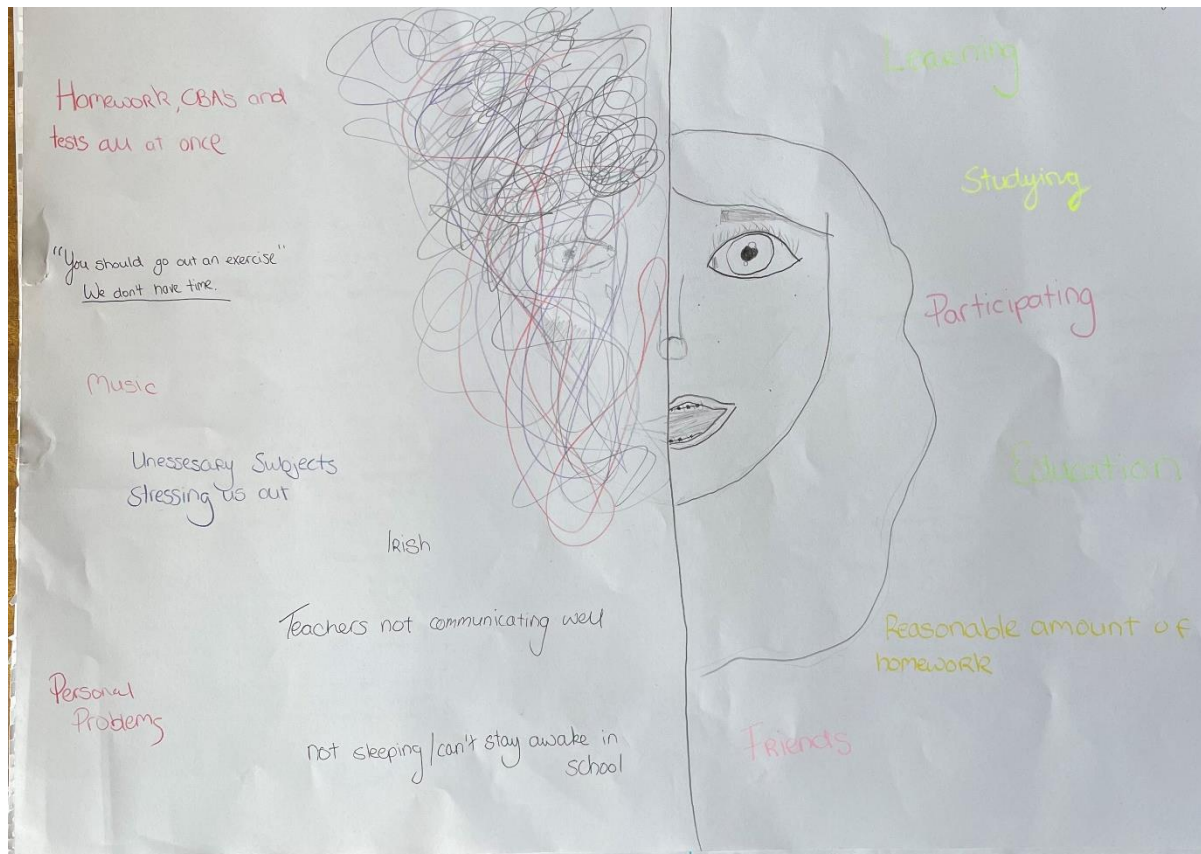 Homework, CBA's and
tests all at once
"You should go out an exercise"
We don't have time.
Music
Unessesary Subjects
Stressing us out
Irish
Teachers not communicating well
Personal
Problems
not sleeping/can't stay awake in
school
Learning
Studying
Participating
Education
Reasonable amount of
homework
Friends